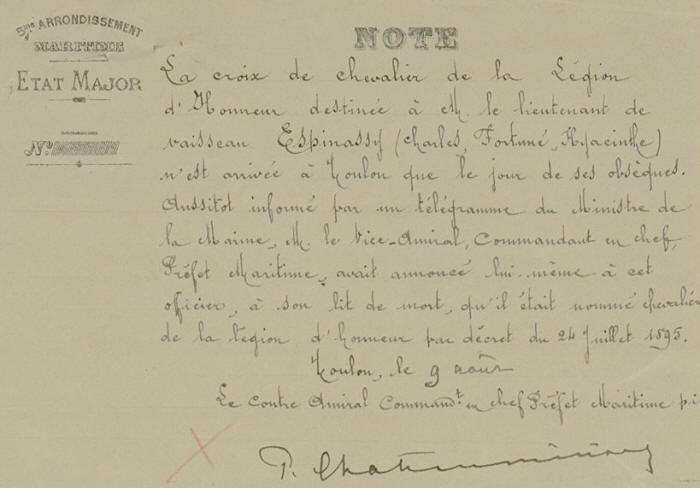 5me ARRONDISSEMENT
MARITIME
ETAT MAJOR
No
NOTE
La croix de chevalier de la Légion
d'Honneur destinée à M. le lieutenant de
vaisseau Espinassy (Charles, Fortuné, Hyacinthe)
n'est arrivée à Toulon que le jour de ses obsèques.
Aussitot informé par un télégramme du Ministre de
la Marine, M. le Vice-Amiral, Commandant en chef,
Préfet Maritime, avait annoncé lui-même à cet
officier, à son lit de mort, qu'il était nommé chevalier
de la légion d'honneur par décret du 24 Juillet 1895.
Toulon, le 9 août
Le Contre Amiral Commandt en chef Préfet Maritime p.i